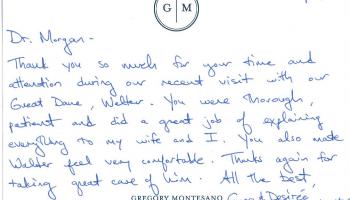 G M
Dr. Morgan -
Thank you so much for your time and
attention during our recent visit with our
Great Dane, Walter. You were thorough,
patient and did a great job of explaining
everything to my wife and I. You also made
Walter feel very comfortable. Thanks again for
taking great care of him. All the best,
GREGORY MONTESANO
Desirée